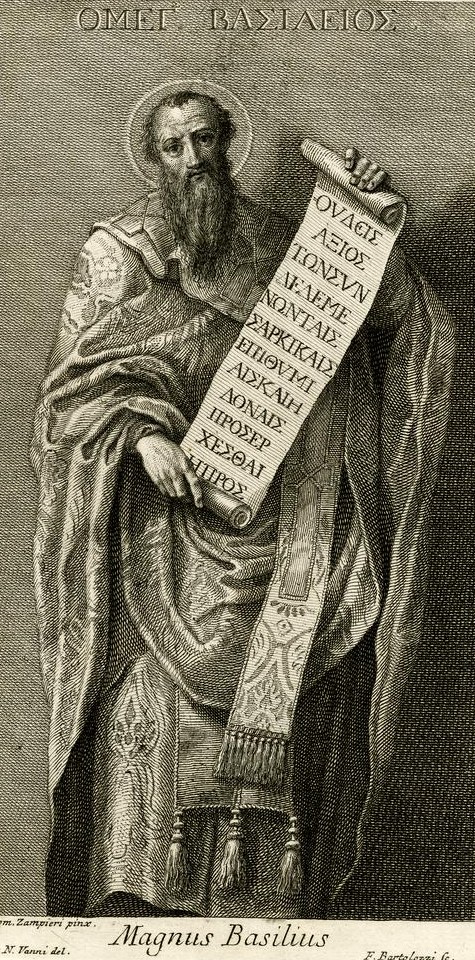 ΟΜΕΓ. ΒΑΣΙΛΕΙΟΣ
ΟΥΔΕΙΣ
ΑΞΙΟΣ
ΤΩΝΣΥΝ
ΔΕΔΕΜΕ
ΝΩΝΤΑΙΣ
ΣΑΡΚΙΚΑΙΣ
ΕΠΙΘΥΜΙ
ΑΙΣΚΑΙΗ
ΔΟΝΑΙΣ
ΠΡΟΣΕΡ
ΧΕΣΘΑΙ
ΗΠΡΟΣ
om. Zampieri pinx.
N. Vanni del.
Magnus Basilius
F. Bartolozzi sc.